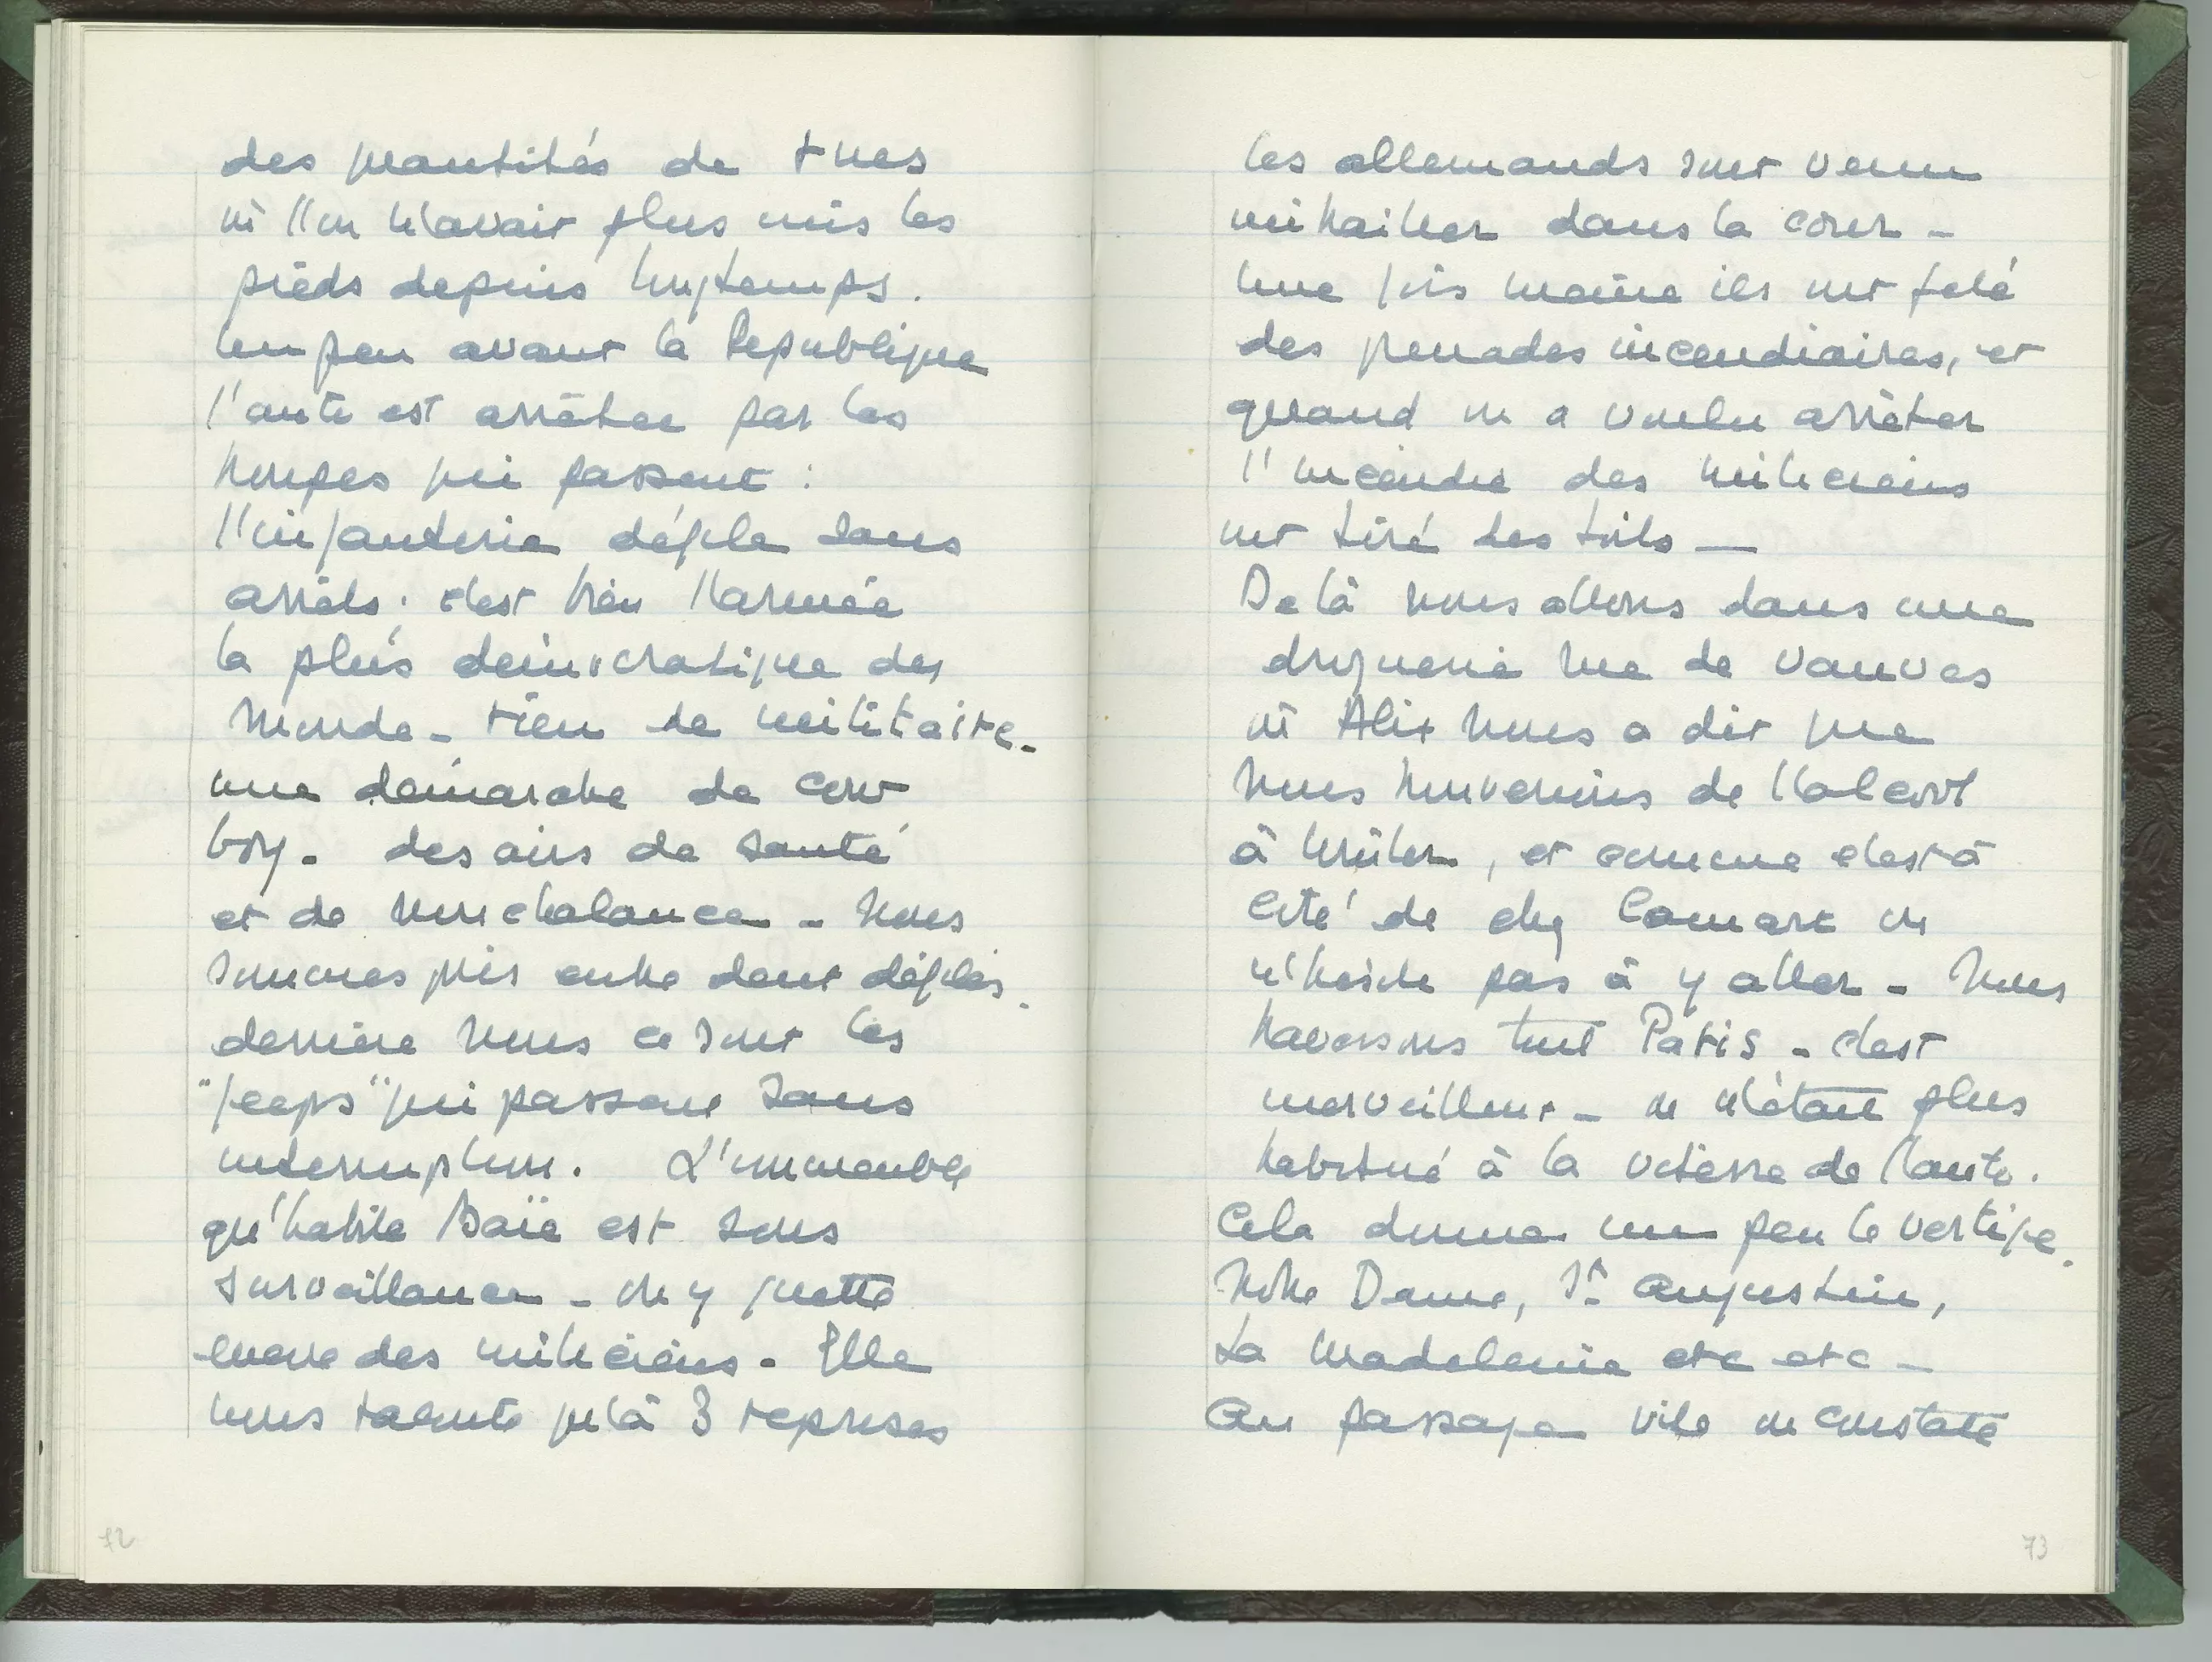 des quantités de rues
où l'on n'avait plus mis les
pieds depuis longtemps.
Un peu avant la Republique
l'auto est arrêtée par les
troupes qui passent :
l'infanterie défile sans
arrêts. c'est bien l'armée
la plus démocratique du
monde - rien de militaire -
une démarche de cow
boy. des airs de santé
et de nonchalance - Nous
sommes pris entre deux défilés.
derrière nous ce sont les
"jeeps" qui passent sans
interruption. L'immeuble
qu'habite Baïe est sous
surveillance - on y guette
encore des miliciens. Elle
nous raconte qu'à 3 reprises
72
les allemands sont venu
mitrailler dans la cour -
Une fois même ils ont jeté
des grenades incendiaires, et
quand on a voulu arrêter
l'incendie des miliciens
ont tiré des toits —
De là nous allons dans une
droguerie rue de Vanves
où Alix nous a dit que
nous trouverions de l'alcool
à brûler, et comme c'est à
côté de chez Comare on
n'hésite pas à y aller - Nous
traversons tout Paris - c'est
merveilleux - on n'était plus
habitué à la vitesse de l'auto.
Cela donne un peu le vertige.
Notre Dame, St Augustin,
La Madeleine etc etc -
Au passage vite on constate
73